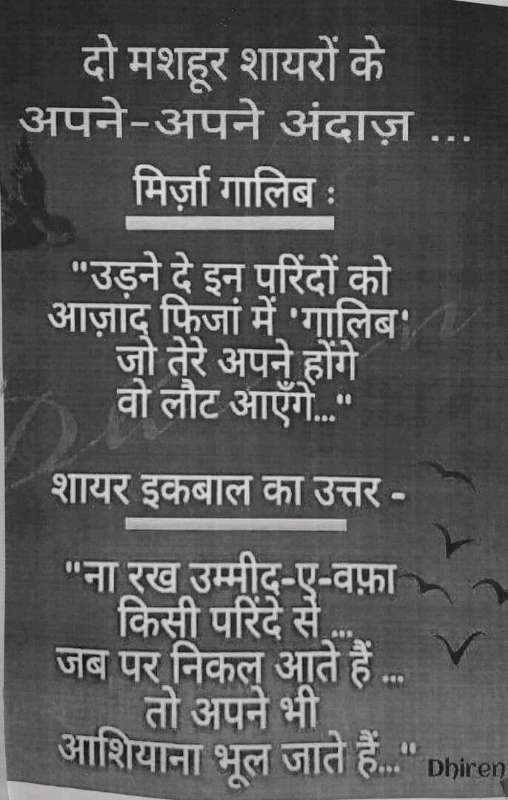 दो मशहूर शायरों के
अपने-अपने अंदाज़ ...
मिर्ज़ा गालिब :
"उड़ने दे इन परिंदों को
आज़ाद फिजां में 'गालिब'
जो तेरे अपने होंगे
वो लौट आएँगे..."
शायर इकबाल का उत्तर -
"ना रख उम्मीद-ए-वफ़ा
किसी परिंदे से ...
जब पर निकल आते हैं ...
तो अपने भी
आशियाना भूल जाते हैं..."
Dhiren